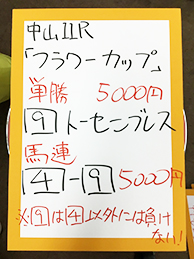 中山11R
「フラワーカップ」
単勝 5000円
9 トーセンブレス
馬連
4-9 5000円
※9は4以外には負け
ない!